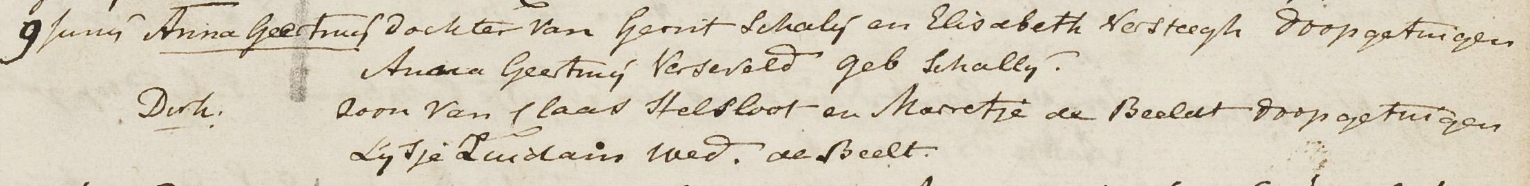 9 Junij Anna Geertruij dochter van Gerrit Schalij en Elisabeth Versteegh doopgetuigen
Anna Geertruij Verseveld geb Schallij.
Dirk. zoon van Claas Helsloot en Marretje de Beeldt doopgetuigen
Lijsje Zuidam wed. de Beelt.